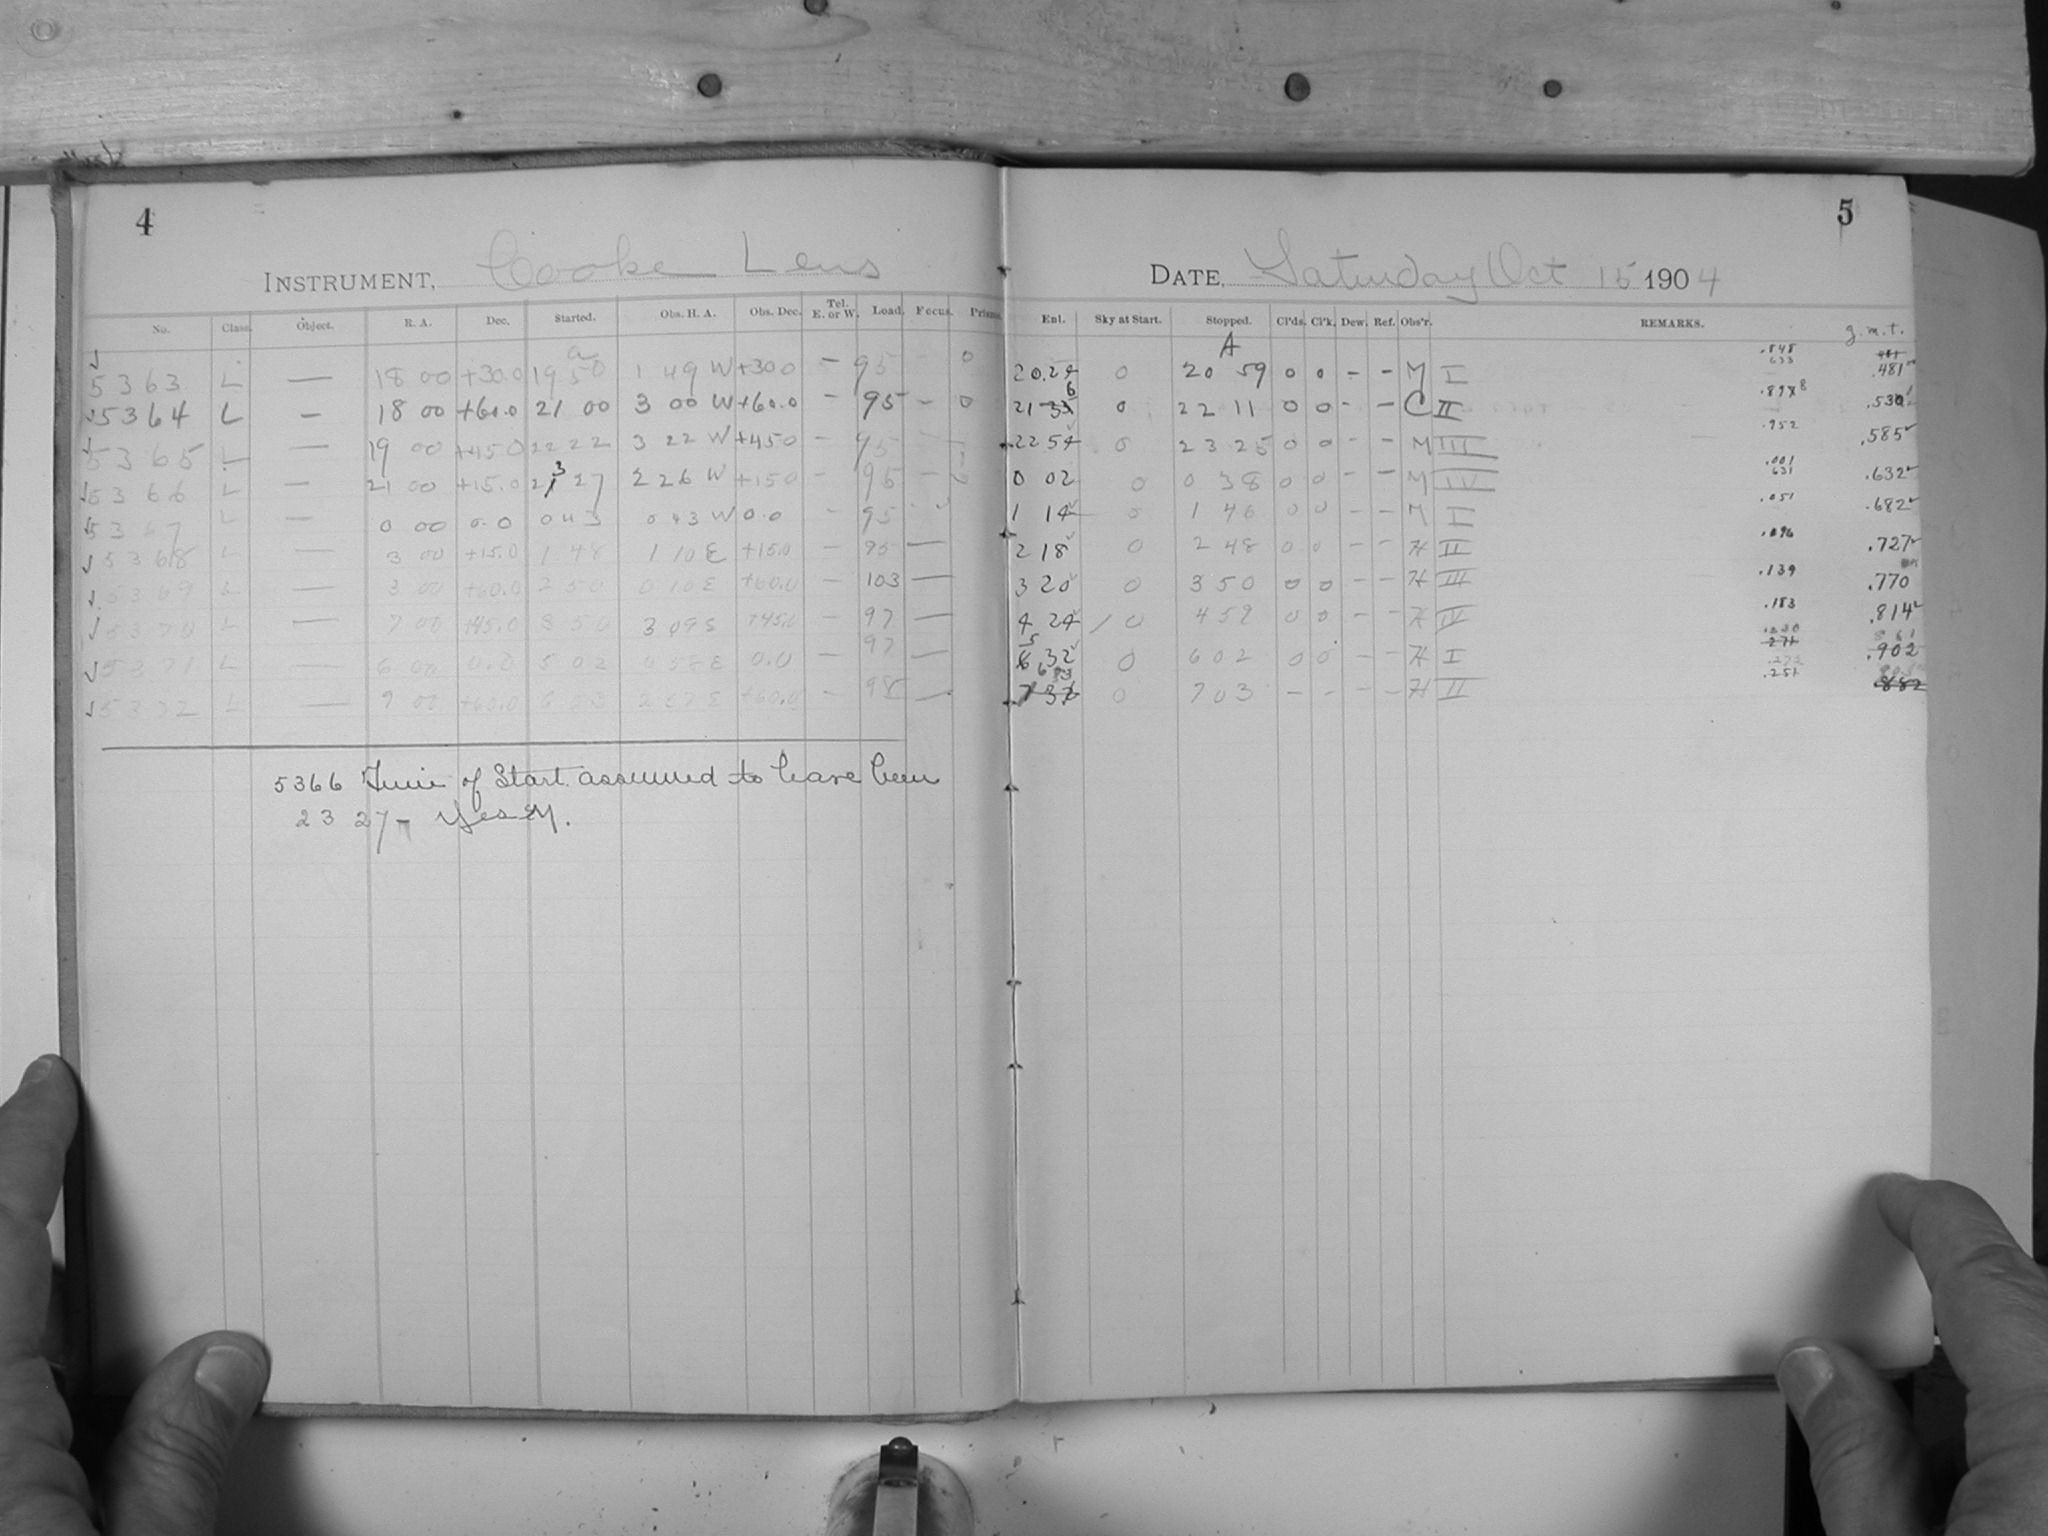 4
INSTRUMENT, Cooke Lens
No. Class. Object. R. A. Dec. Started. Obs. H. A. Obs. Dec. Tel. E. or W. Load. Focus. Prisms.
5363 L — 18 00 +30.0 19 50 1 49 W +30 0 – 95 – 0
5364 L — 18 00 +60.0 21 00 3 00 W +60.0 – 95 – 0
5365 L — 19 00 +45 0 22 22 3 22 W +45 0 – 95 –
5366 L — 21 00 +15.0 23 27 2 26 W +15 0 – 95 –
5367 L — 0 00 0.0 0 43 0 43 W 0.0 – 95
5368 L — 3 00 +15.0 1 48 1 10 E +15.0 – 95 —
5369 L — 3 00 +60.0 2 50 0 10 E +60.0 – 103 —
5370 L — 7 00 +45.0 3 09 E +45.0 – 97 —
5371 L — 6 00 0.0 5 02 0 58 E 0.0 – 97 —
5372 L — 9 00 +60.0 6 03 2 57 E +60.0 – 98 —
5366 Time of Start assumed to have been
23 27 – Yes M.
5
DATE, Saturday Oct 15 1904
Ent. Sky at Start. Stopped. Cl'ds. Cl'k. Dew. Ref. Obs'r. REMARKS. g.m.t.
A
20.24 0 20 59 0 0 – – M I .848 .481
21 36 0 22 11 0 0 – – C II .898 .530
22 54 0 23 25 0 0 – – M III .952 .585
0 02 0 0 38 0 0 – – M IV .001 .632
1 14 0 1 46 0 0 – – M I .051 .682
2 18 0 2 48 0 0 – – H II .096 .727
3 20 0 3 50 0 0 – – H III .139 .770
4 24 0 4 59 0 0 – – H IV .183 .814
5 32 0 6 02 0 0 – – H I .861
6 33 0 7 03 – – – – H II